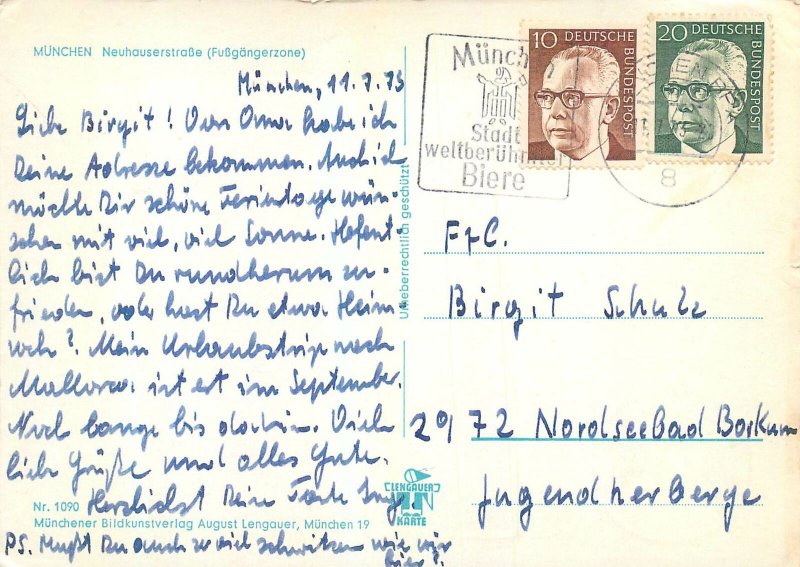 MÜNCHEN Neuhauserstraße (Fußgängerzone)
München, 11.7.73
Liebe Birgit! Von Oma habe ich
Deine Adresse bekommen. Auch ich
möchte Dir schöne Ferientage wün-
schen mit viel, viel Sonne. Hoffent-
lich bist Du rundherum zu-
frieden, oder hast Du etwa Heim
weh? Mein Urlaubstrip nach
Mallorca ist erst im September.
Noch lange bis dahin. Viele
liebe Grüße und alles Gute.
Herzlichst Deine Tante Inge
Nr. 1090
Münchener Bildkunstverlag August Lengauer, München 19
PS. Mußt Du auch so viel schwitzen wie wir
hier?
Urheberrechtlich geschützt
LENGAUER
KARTE
München
Stadt
weltberühmter
Biere
10 DEUTSCHE BUNDESPOST
20 DEUTSCHE BUNDESPOST
8
Birgit Schulz
2972 Nordseebad Borkum
Jugendherberge